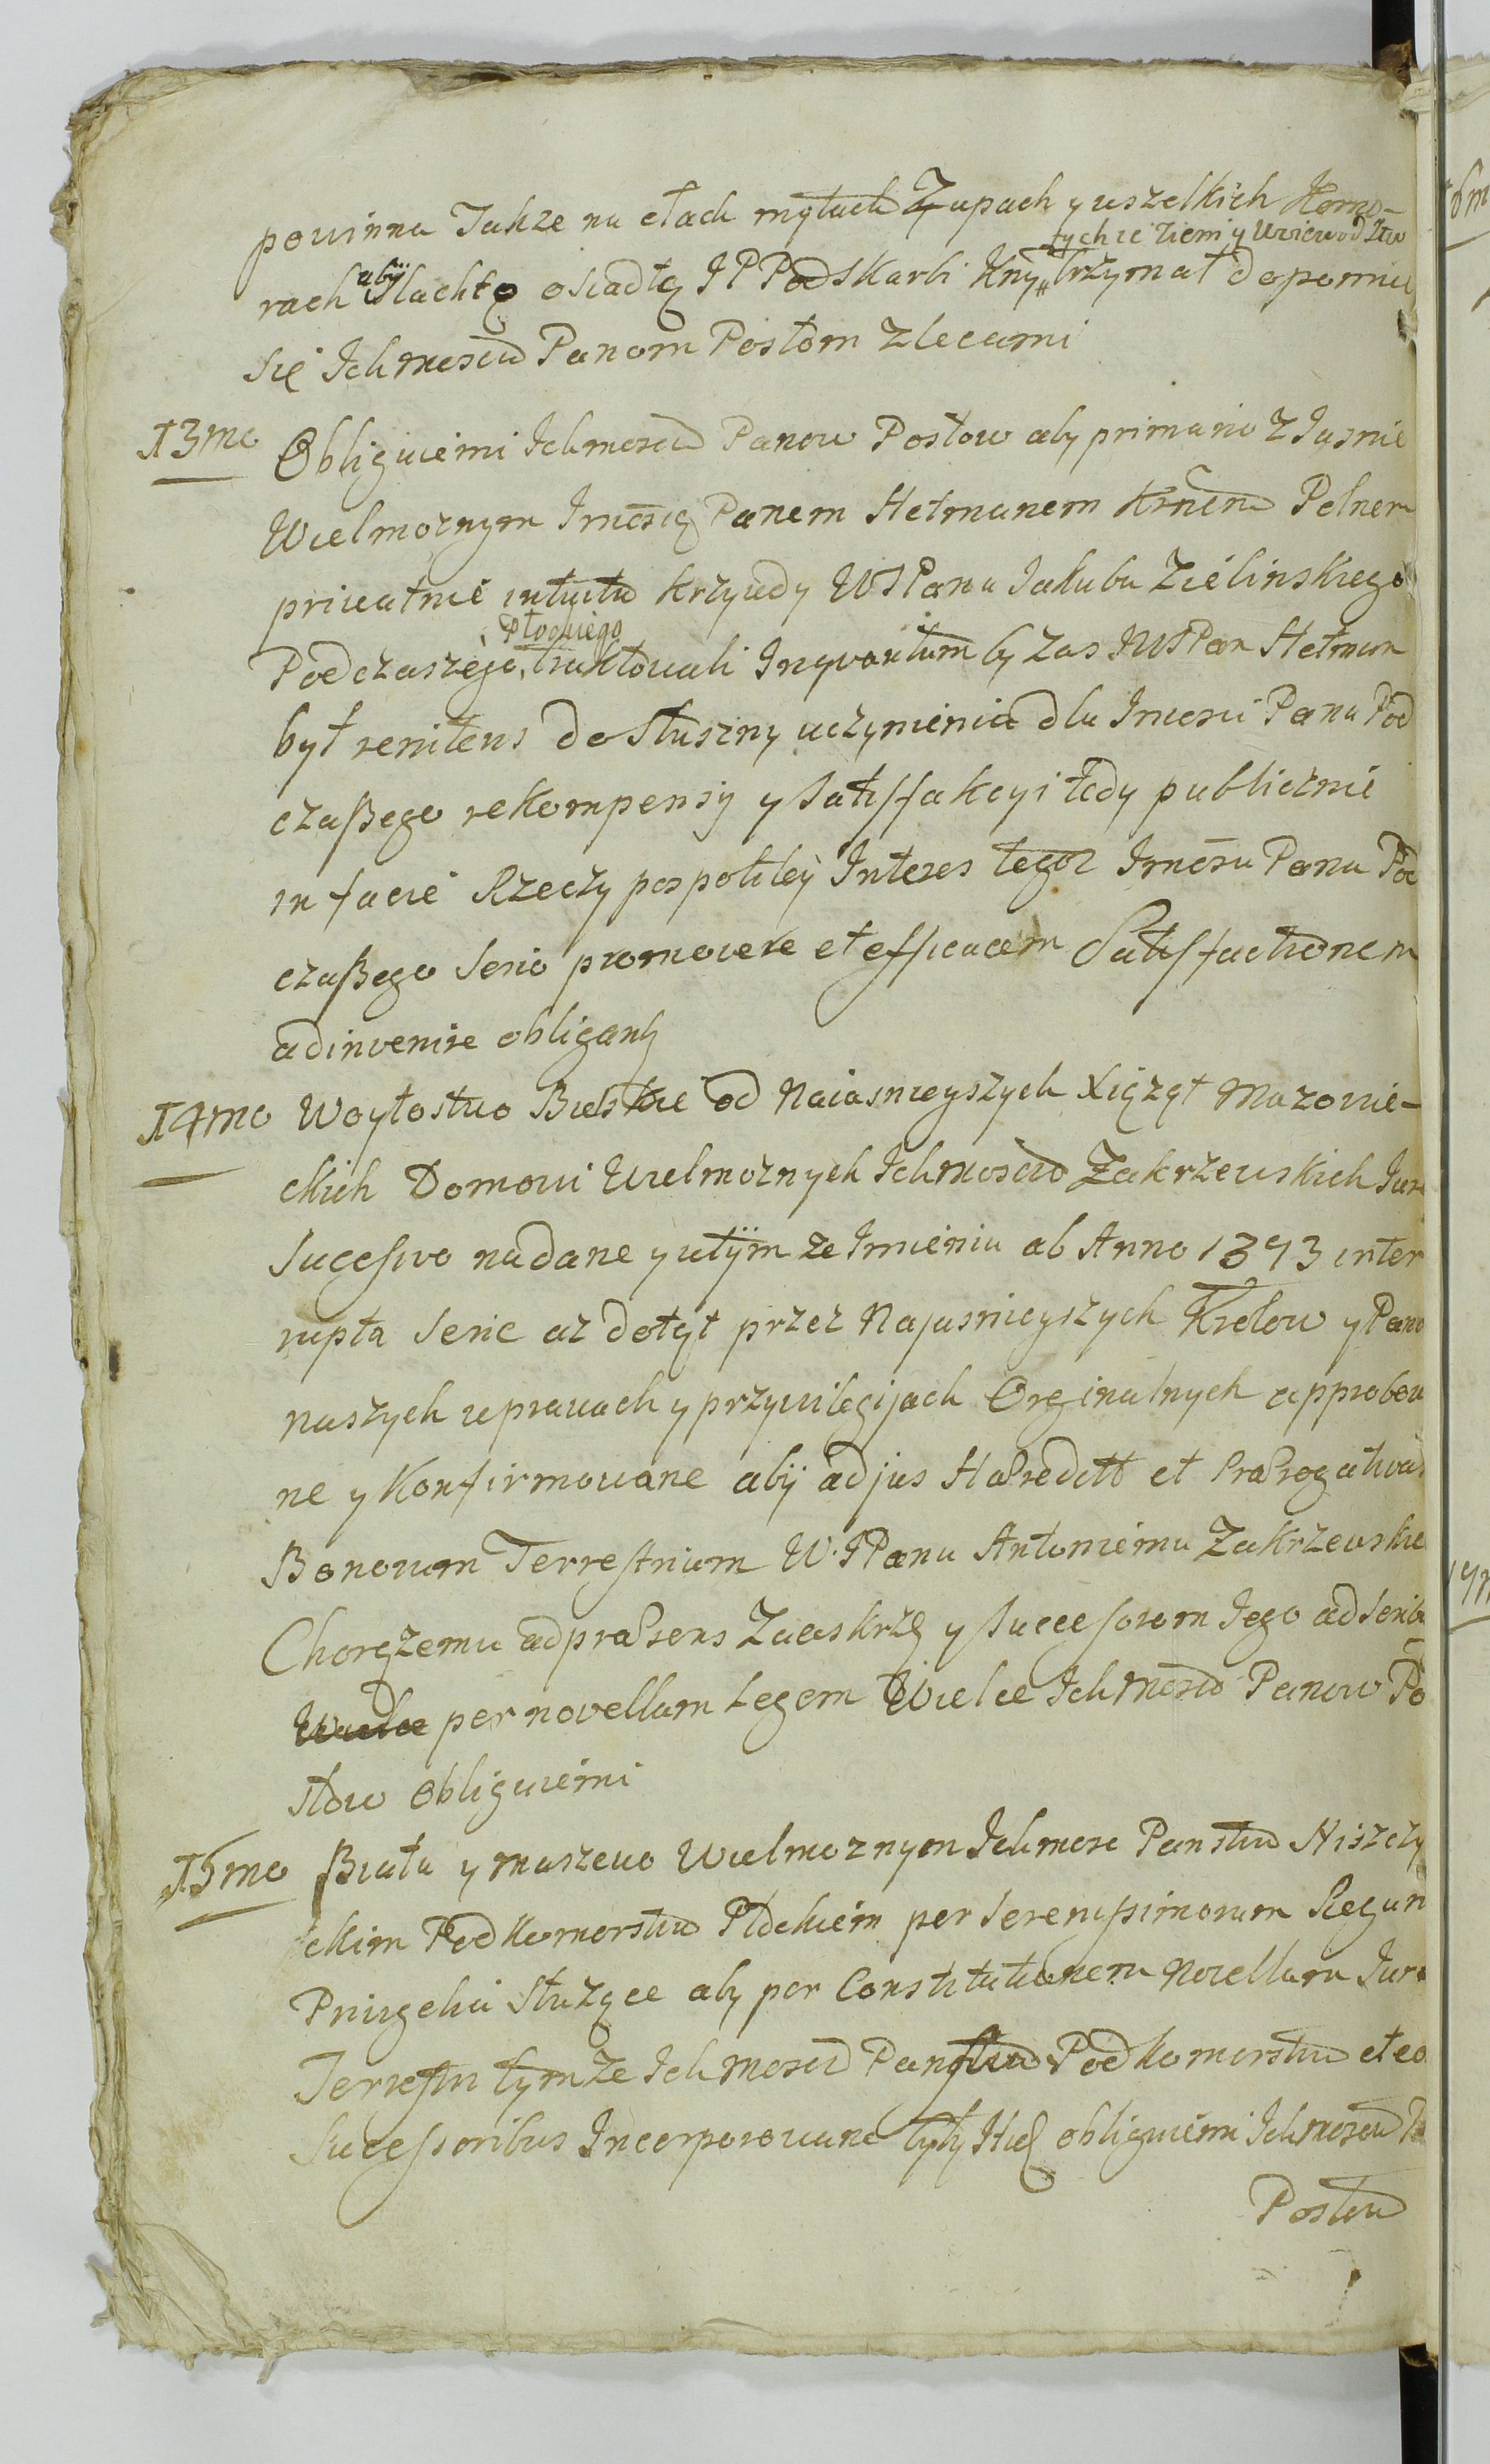 powinna Takze na cłach mytach Zupach y wszelkich Komo-
tychze Ziemi y Woiewodztw
rach abÿ Slachtę osiadłą J P Podskarbi Knÿ trzymał dopomnie
się Ichmosciow Panom Posłom zlecami
13mo Obliguiemi Ichmosciow Panow Posłow aby primario z Jasnie
Wielmoznym Jmcsią Panem Hetmanem Krnem Polnem
priuatnie intuitu krzywdy WJPana Jakuba Zielinskiego
Płockiego
Podczaszego, traktowali Inquantum by zas JWJPan Hetman
był renitens do słuszny uczynienia dla Jmcsci Pana Pod
czaßego rekompensy y satisffakcyi tedy publicznie
in facie Rzeczy pospolitey Interes tegoz Jmcsci Pana Pod
czaßego serio promovere et efficacem Satisffactionem
adinvenire obligantz
14mo Woytostwo Bielskie od Naiasnieyszych Xiążąt Mazowie-
ckich Domowi Wielmoznych Ichmosciow Zakrzewskich Jure
Sucessivo nadane y utÿm ze Imieniu ab Anno 1393 inter
rupta serie az dotąt przez Najasnieyszych Krolow y Pano
naszych w prawach y przywilegijach Orginalnych approbowa
ne y Konfirmowane abÿ ad jus Hæreditt et Prærogativas
Bonorum Terrestrium W. JPanu Antoniemu Zakrzewskie
Chorązemu ad præsens Zawskrz y Successorom Jego adscribi
Wielce per novellam Legem Wielce Ichmosciow Panow Po
słow obliguiemi
15mo Biała y Maszewo Wielmoznym Ichmosc Panstwu Niszczy
ckim Podkomorstwu Płockiem per Serenissimorum Regum
Privigelia Służące aby per Constitutionem Novellam Jure
Terrestri tymze Ichmosciow Panstwu Podkomorstwu et eo
Sucessoribus Incorporowane były obliguiemi Ichmosciow Pa
Posłow